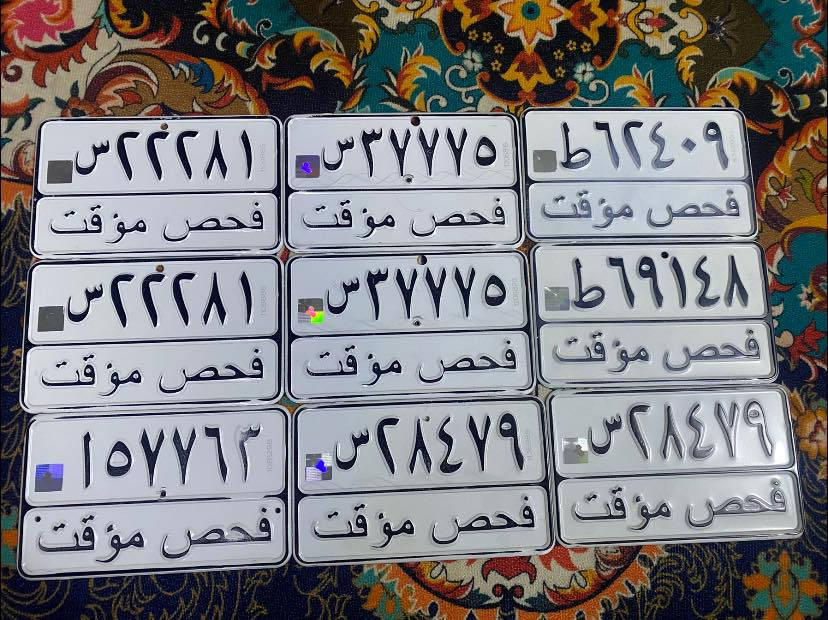 س ٢٢٢٨١
فحص مؤقت
س ٣٧٧٧٥
فحص مؤقت
ط ٦٢٤٠٩
فحص مؤقت
س ٢٢٢٨١
فحص مؤقت
س ٣٧٧٧٥
فحص مؤقت
ط ٦٩١٤٨
فحص مؤقت
١٥٧٧٦٣
فحص مؤقت
س ٢٨٤٧٩
فحص مؤقت
س ٢٨٤٧٩
فحص مؤقت